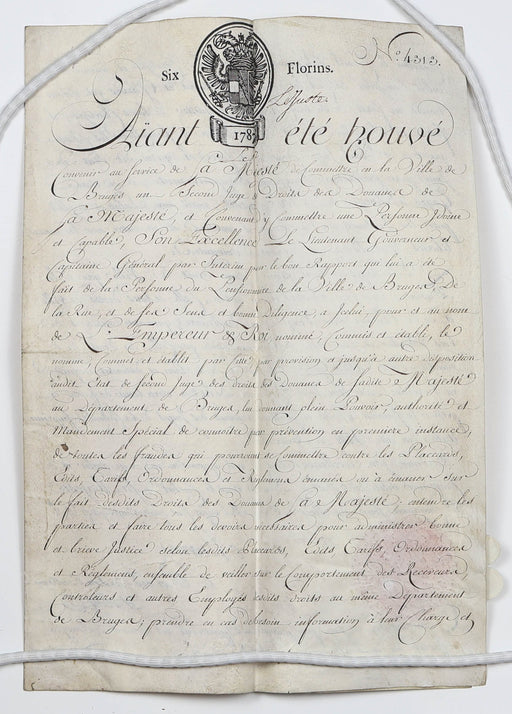 Six Florins. N.º 4313.
LeJuste.
178
Aïant été trouvé
Convenir au service de Sa Majesté de Commettre en la Ville de
Bruges un Second Juge des Droits des Douanes de
Sa Majesté, et Convenant y Commettre une Personne Idoine
et Capable, Son Excellence Le Lieutenant Gouverneur et
Capitaine Général par Interim par le bon Rapport qui lui a été
fait de la Personne du Pensionnaire de la Ville de Bruges, De
la Rue, et de ses Sens et bonne diligence, a Icelui, pour et au nom
de L'Empereur & Roi nommé, Commis et établi, le
nomme, Commet et établit par cette par provision et jusqu'à autre disposition
audit Etat de Second Juge des droits des douanes de Sadite Majesté
au Département de Bruges, lui donnant plein Pouvoir, authorité et
Mandement Spécial de connoitre par prévention en première instance,
de toutes les fraudes qui pourroient se Commettre contre les Placcards,
Edits, Tarifs, Ordonnances et émanés ou à émaner Sur
le fait desdits Droits des Douanes de Sa Majesté, entendre les
parties et faire tous les devoirs nécessaires pour administrer bonne
et brieve Justice selon lesdits Placards, Edits Tarifs, Ordonnances
et Réglemens, ensemble de veiller sur le Comportement des Receveurs,
Controleurs et autres Employés desdits droits au même Département
de Bruges; prendre en cas de besoin information à leur Charge et